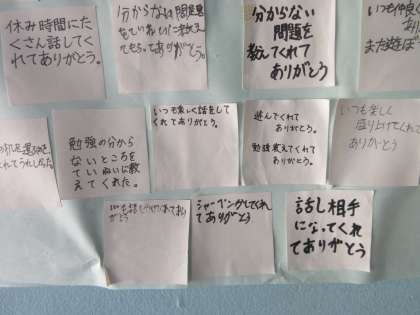 休み時間にた
くさん話してく
れてありがとう。
分からない問題を
ていねいに教え
てもらってありがとう。
分からない
問題を
教えてくれて
ありがとう
いつも仲良く
また遊ぼ
勉強の分から
ないところを
ていねいに教
えてくれた。
いつも楽しく話をして
くれてありがとう。
遊んでくれて
ありがとう。
勉強教えてくれて
ありがとう。
いつも楽しく
盛り上げてくれて
ありがとう
シャーペンかしてくれ
てありがとう
話し相手
になってくれ
てありがとう